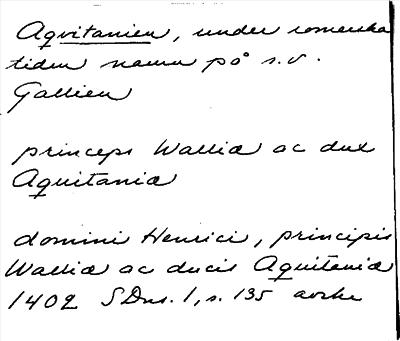 Aqvitanien, under romerska
tiden namn på s.v.
Gallien
princeps Walliæ ac dux
Aquitaniæ
domini Henrici, principis
Walliæ ac ducis Aquitaniæ
1402 SDns. 1, s. 135 avskr